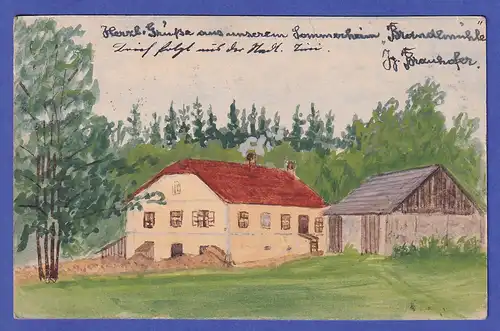 Herzl. Grüße aus unserem Sommerheim „Brandlmühle“
Brief folgt mit der Stadt.
Jg. Brauhofer.